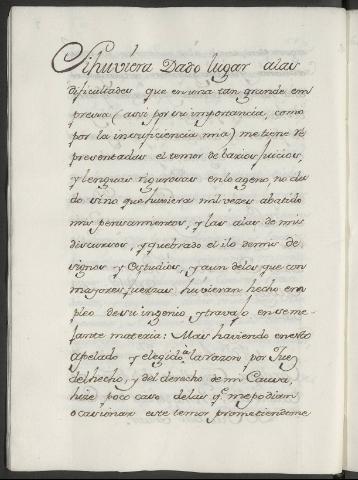 Si huviera Dado lugar alas
dificultades que en una tan grande em
presa (assi por su importancia, como
por la insuficiencia mia) me tiene re
presentadas el temor de varios juicios,
y lenguas rigurosas en lo ageno, no du
do sino que huviera mil vezes abatido
mis pensamientos, y las alas de mis
discursos, y quebrado el ilo de mis de
signos y Estudios, y aun delos que con
mayores fuerzas huvieran hecho em
pleo de su ingenio y travajo en seme
jante materia: Mas haviendo en esto
apelado y elegido a la razon por Juez
del hecho, y del derecho de mi Causa,
hize poco caso delas q.e me podian
ocasionar este temor prometiendome